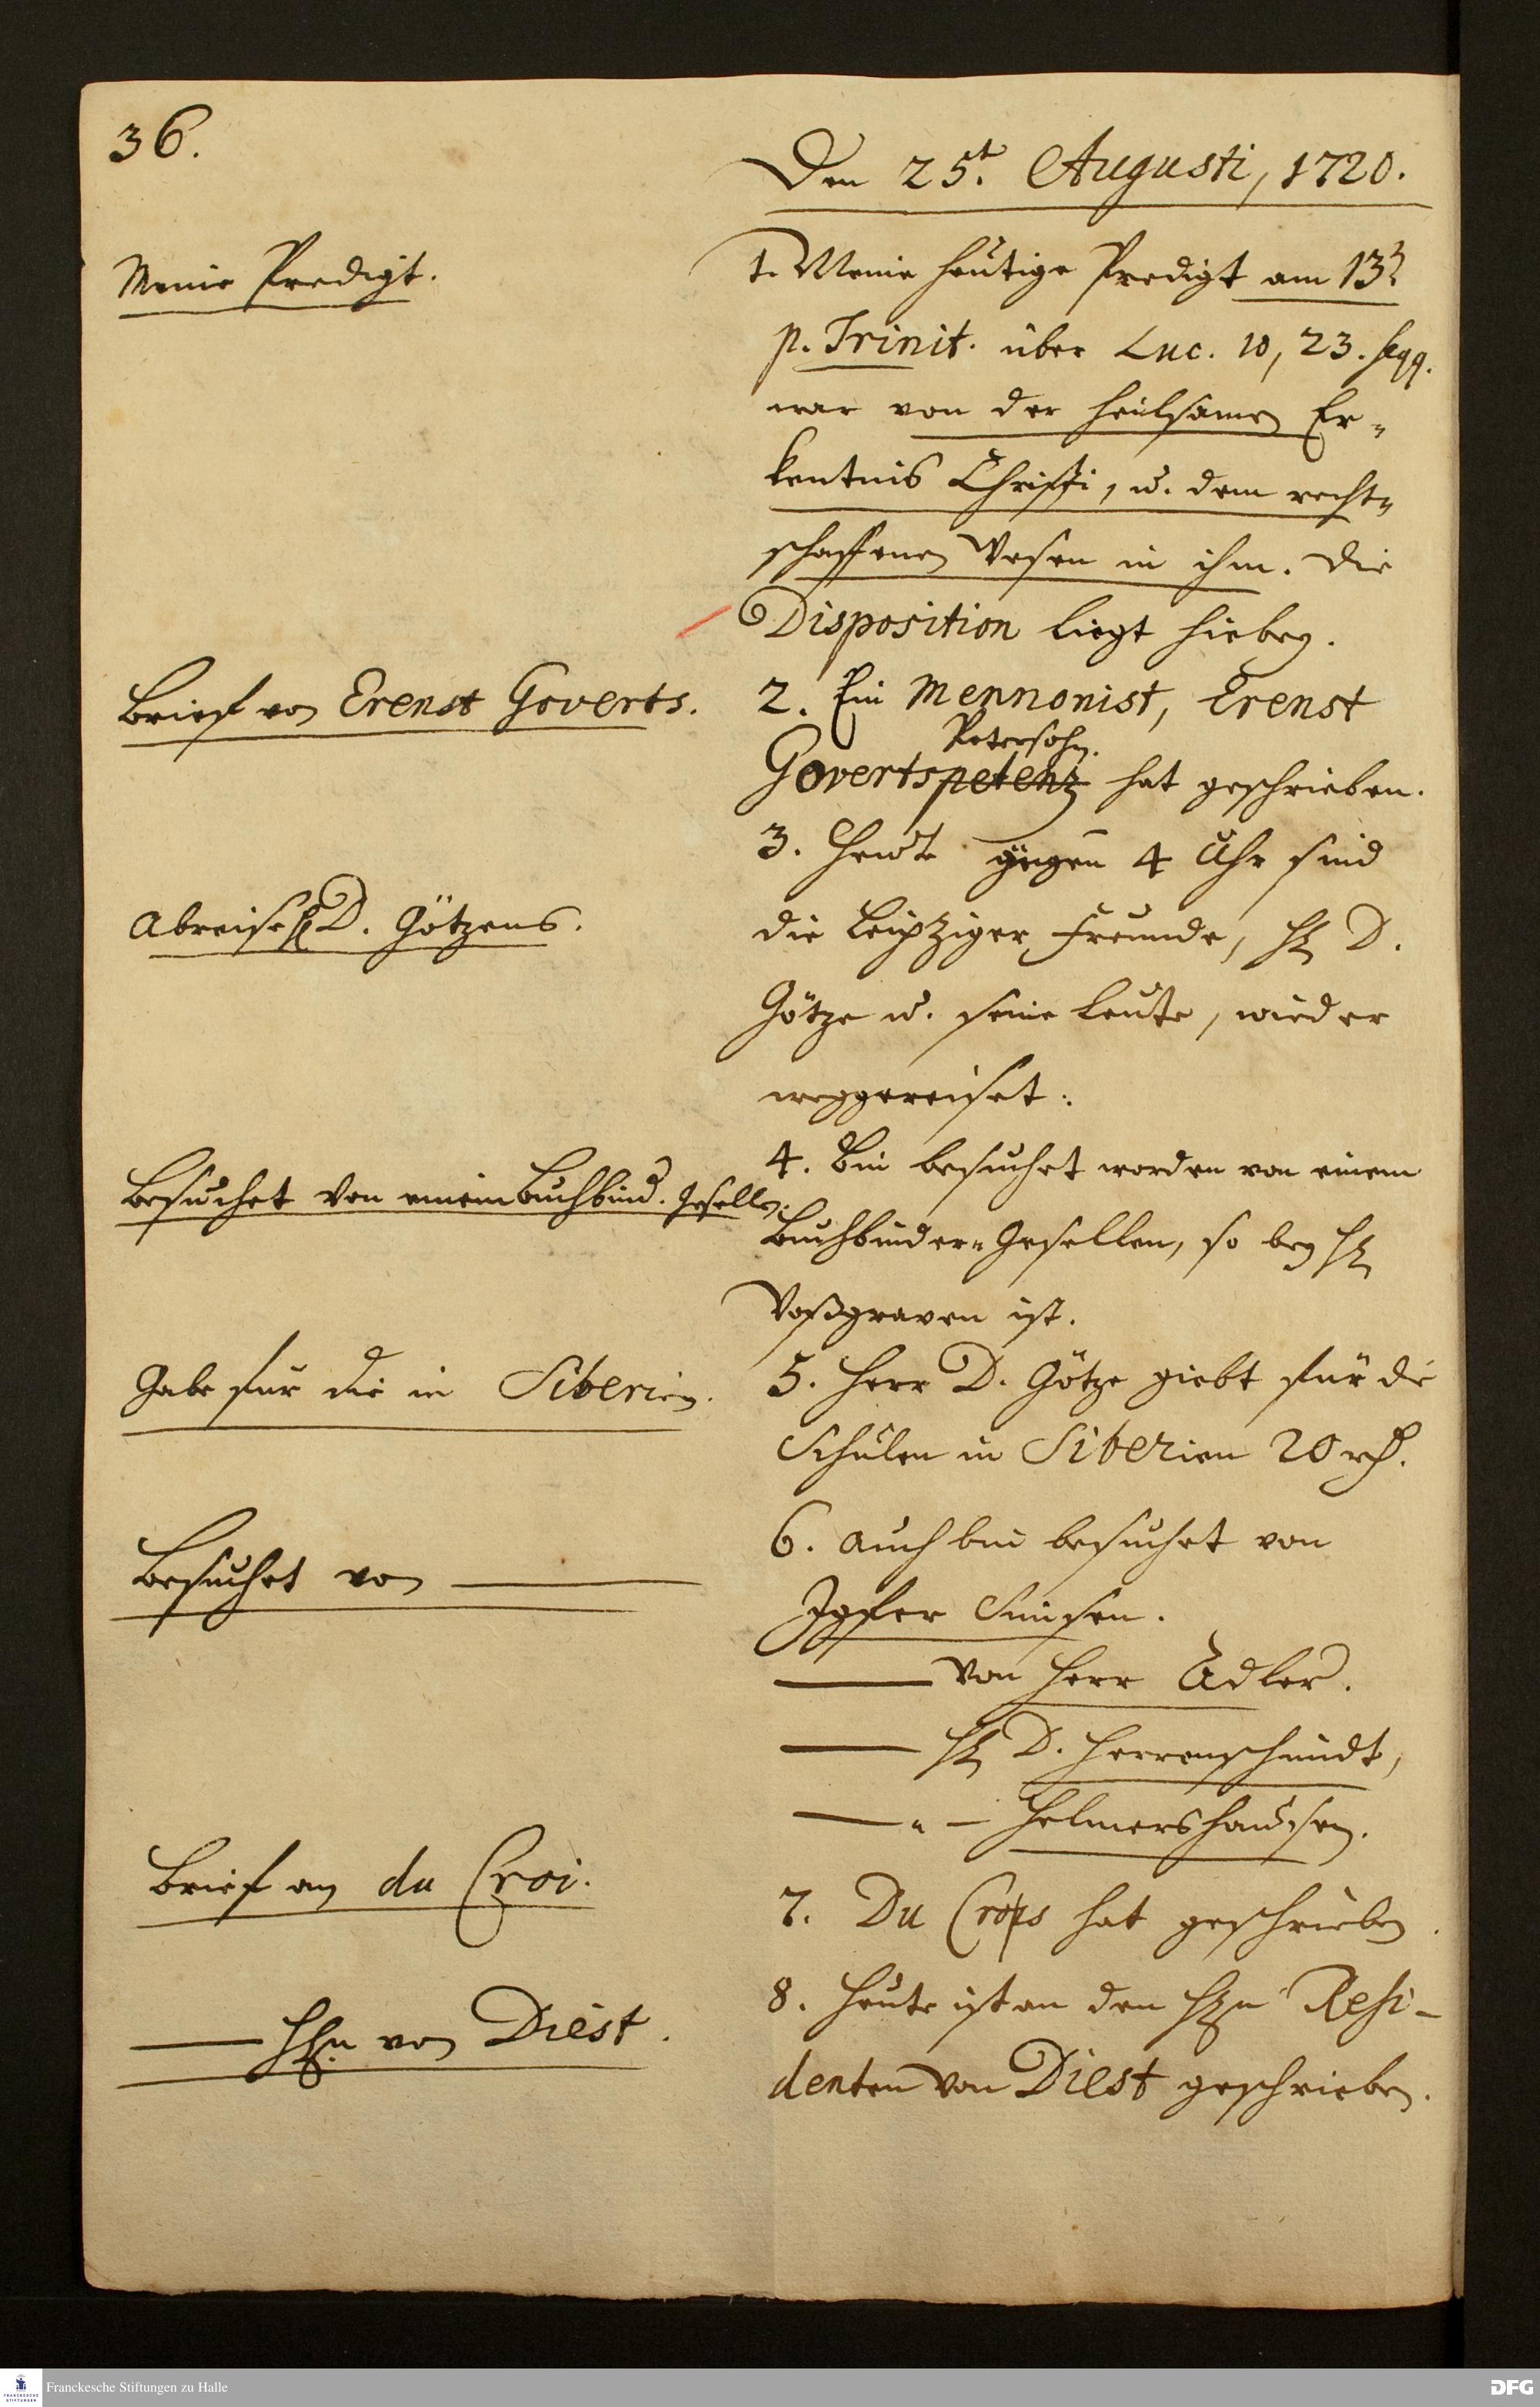 36.
Den 25t. Augusti, 1720.
Meine Predigt.
1. Meine heutige Predigt am 13.
p. Trinit. über Luc. 10, 23. seqq.
war von der heilsamen Er-
kentnis Christi, u. dem recht-
schaffenen Wesen in ihm. Die
Disposition liegt hiebey.
Brief von Erenst Goverts.
2. Ein Mennonist, Erenst
Petersohn.
Govertspetenz hat geschrieben.
3. Heute gegen 4 Uhr sind
Abreise H. D. Götzens.
die Leipziger Freunde, H. D.
Götze u. seine Leute, wieder
weggereiset.
Besuchet von einem Buchbind. Gesellen.
4. Bin besuchet worden von einem
Buchbinder-Gesellen, so bey H.
Voßgraven ist.
Gabe für die in Siberien.
5. Herr D. Götze giebt für die
Schulen in Siberien 20 rh.
Besuchet von
6. Auch bin besuchet von
Jgfer
von Herr Adler.
H. D. Herrenschmidt,
Helmershausen.
Brief an du Croi.
7. Du Crops hat geschrieben.
Hhn. von Diest.
8. Heute ist an den Hrn Resi-
denten von Diest geschrieben.
Franckesche Stiftungen zu Halle
FRANCKESCHE
STIFTUNGEN
DFG